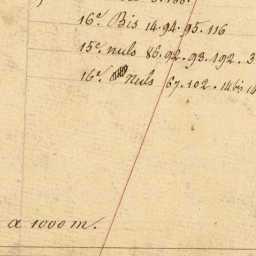 16e Bis 14. 94. 95. 116
15e nuls 86. 92. 93. 192. 3
16e nuls 67. 102. 14
a 1000 m.